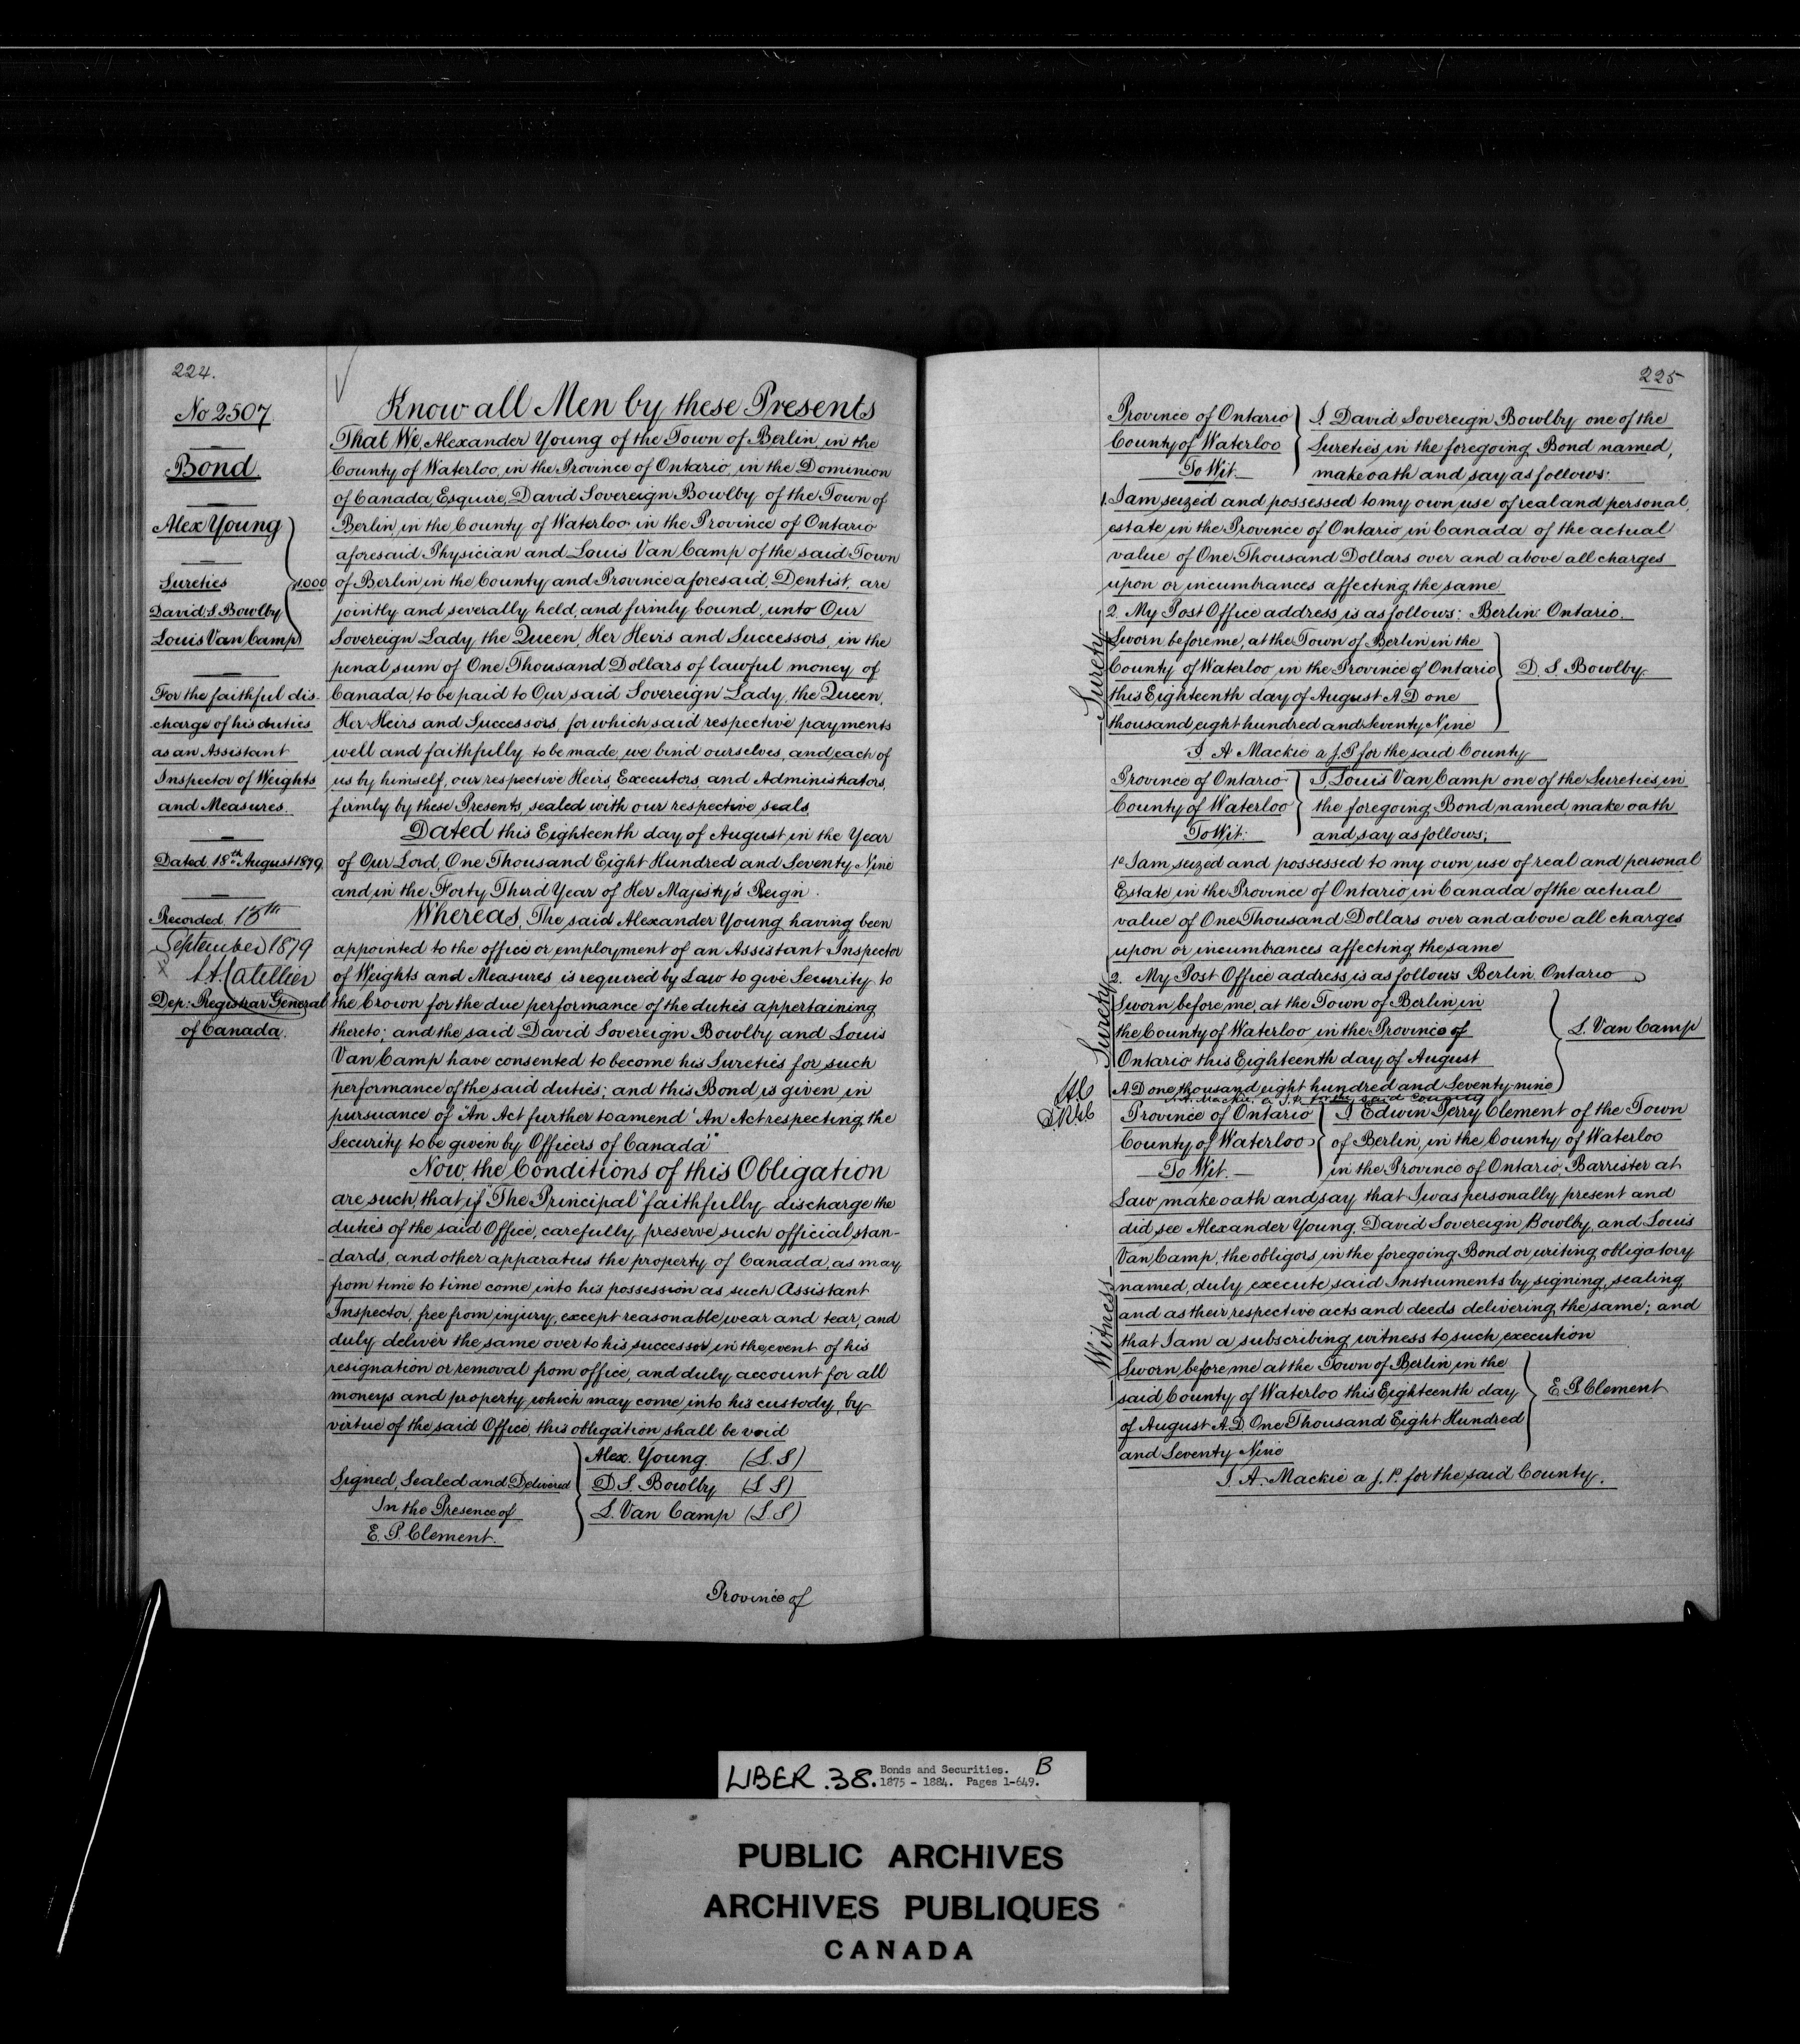 224.
No 2507
Bond
Alex Young
Sureties
1000
David. S. Bowlby
Louis Van Camp
For the faithful dis-
charge of his duties
as an Assistant
Inspector of Weights
and Measures.
Dated 18th August 1879.
Recorded 15th
September 1879
Dep: Registrar General
of Canada.
Know all Men by these Presents
That We, Alexander Young of the Town of Berlin in the
County of Waterloo, in the Province of Ontario, in the Dominion
of Canada, Esquire, David Sovereign Bowlby of the Town of
Berlin, in the County of Waterloo in the Province of Ontario
aforesaid Physician and Louis Van Camp of the said Town
of Berlin in the County and Province aforesaid, Dentist, are
jointly and severally held, and firmly bound, unto Our
Sovereign Lady the Queen, Her Heirs and Successors, in the
penal sum of One Thousand Dollars of lawful money of
Canada, to be paid to Our said Sovereign Lady, the Queen,
Her Heirs and Successors, for which said respective payments
well and faithfully to be made, we bind ourselves, and each of
us by himself, our respective Heirs, Executors, and Administrators,
firmly by these Presents, sealed with our respective seals.
Dated this Eighteenth day of August in the Year
of Our Lord, One Thousand Eight Hundred and Seventy Nine
and in the Forty Third Year of Her Majesty's Reign.
Whereas, The said Alexander Young having been
appointed to the office or employment of an Assistant Inspector
of Weights and Measures is required by Law to give Security to
the Crown for the due performance of the duties appertaining
thereto; and the said David Sovereign Bowlby and Louis
Van Camp have consented to become his Sureties for such
performance of the said duties; and this Bond is given in
pursuance of "An Act further to amend 'An Act respecting the
Security to be given by Officers of Canada'"
Now, the Conditions of this Obligation
are such, that if "The Principal" faithfully discharge the
duties of the said Office, carefully preserve such official stan-
dards, and other apparatus the property of Canada, as may
from time to time come into his possession as such Assistant
Inspector, free from injury, except reasonable wear and tear, and
duly deliver the same over to his successor in the event of his
resignation or removal from office, and duly account for all
moneys and property which may come into his custody, by
virtue of the said Office, this obligation shall be void
Signed, Sealed and Delivered
In the Presence of
E. P. Clement.
Alex. Young. (L.S)
D. S. Bowlby (L S)
L. Van Camp (L.S)
Province of
225
Province of Ontario
County of Waterloo
To Wit.
I. David Sovereign Bowlby one of the
Sureties, in the foregoing Bond named,
make oath and say as follows:
1. I am seized and possessed to my own use of real and personal
estate in the Province of Ontario in Canada of the actual
value of One Thousand Dollars over and above all charges
upon or incumbrances affecting the same
2. My Post Office address is as follows: Berlin Ontario.
Surety
Sworn before me, at the Town of Berlin in the
County of Waterloo, in the Province of Ontario
this Eighteenth day of August A.D one
thousand eight hundred and Seventy Nine
D. S. Bowlby
J. A Mackie a J.P for the said County
Province of Ontario
County of Waterloo
To Wit:
I, Louis Van Camp one of the Sureties, in
the foregoing Bond named, make oath
and say as follows;
1o I am seized and possessed to my own use of real and personal
Estate in the Province of Ontario, in Canada of the actual
value of One Thousand Dollars over and above all charges
upon or incumbrances affecting the same
2. My Post Office address is as follows Berlin. Ontario
Surety
Sworn before me, at the Town of Berlin in
the County of Waterloo in the Province of
Ontario this Eighteenth day of August
A.D one thousand eight hundred and Seventy nine
L. Van Camp
J. A. Mackie a J.P. for the said County
Province of Ontario
County of Waterloo
To Wit.
I Edwin Perry Clement of the Town
of Berlin, in the County of Waterloo
in the Province of Ontario, Barrister at
Law make oath and say that I was personally present and
did see Alexander Young. David Sovereign Bowlby, and Louis
Van Camp, the obligors in the foregoing Bond or writing obligatory
named, duly execute said Instruments by signing, sealing,
and as their respective acts and deeds delivering the same; and
that I am a subscribing witness to such execution
Witness
Sworn before me at the Town of Berlin in the
said County of Waterloo this Eighteenth day
of August A.D. One Thousand Eight Hundred
and Seventy Nine
E. P. Clement
J. A. Mackie a J. P. for the said County.
LIBER. 38. Bonds and Securities. B
1875 - 1884. Pages 1-649.
PUBLIC ARCHIVES
ARCHIVES PUBLIQUES
CANADA